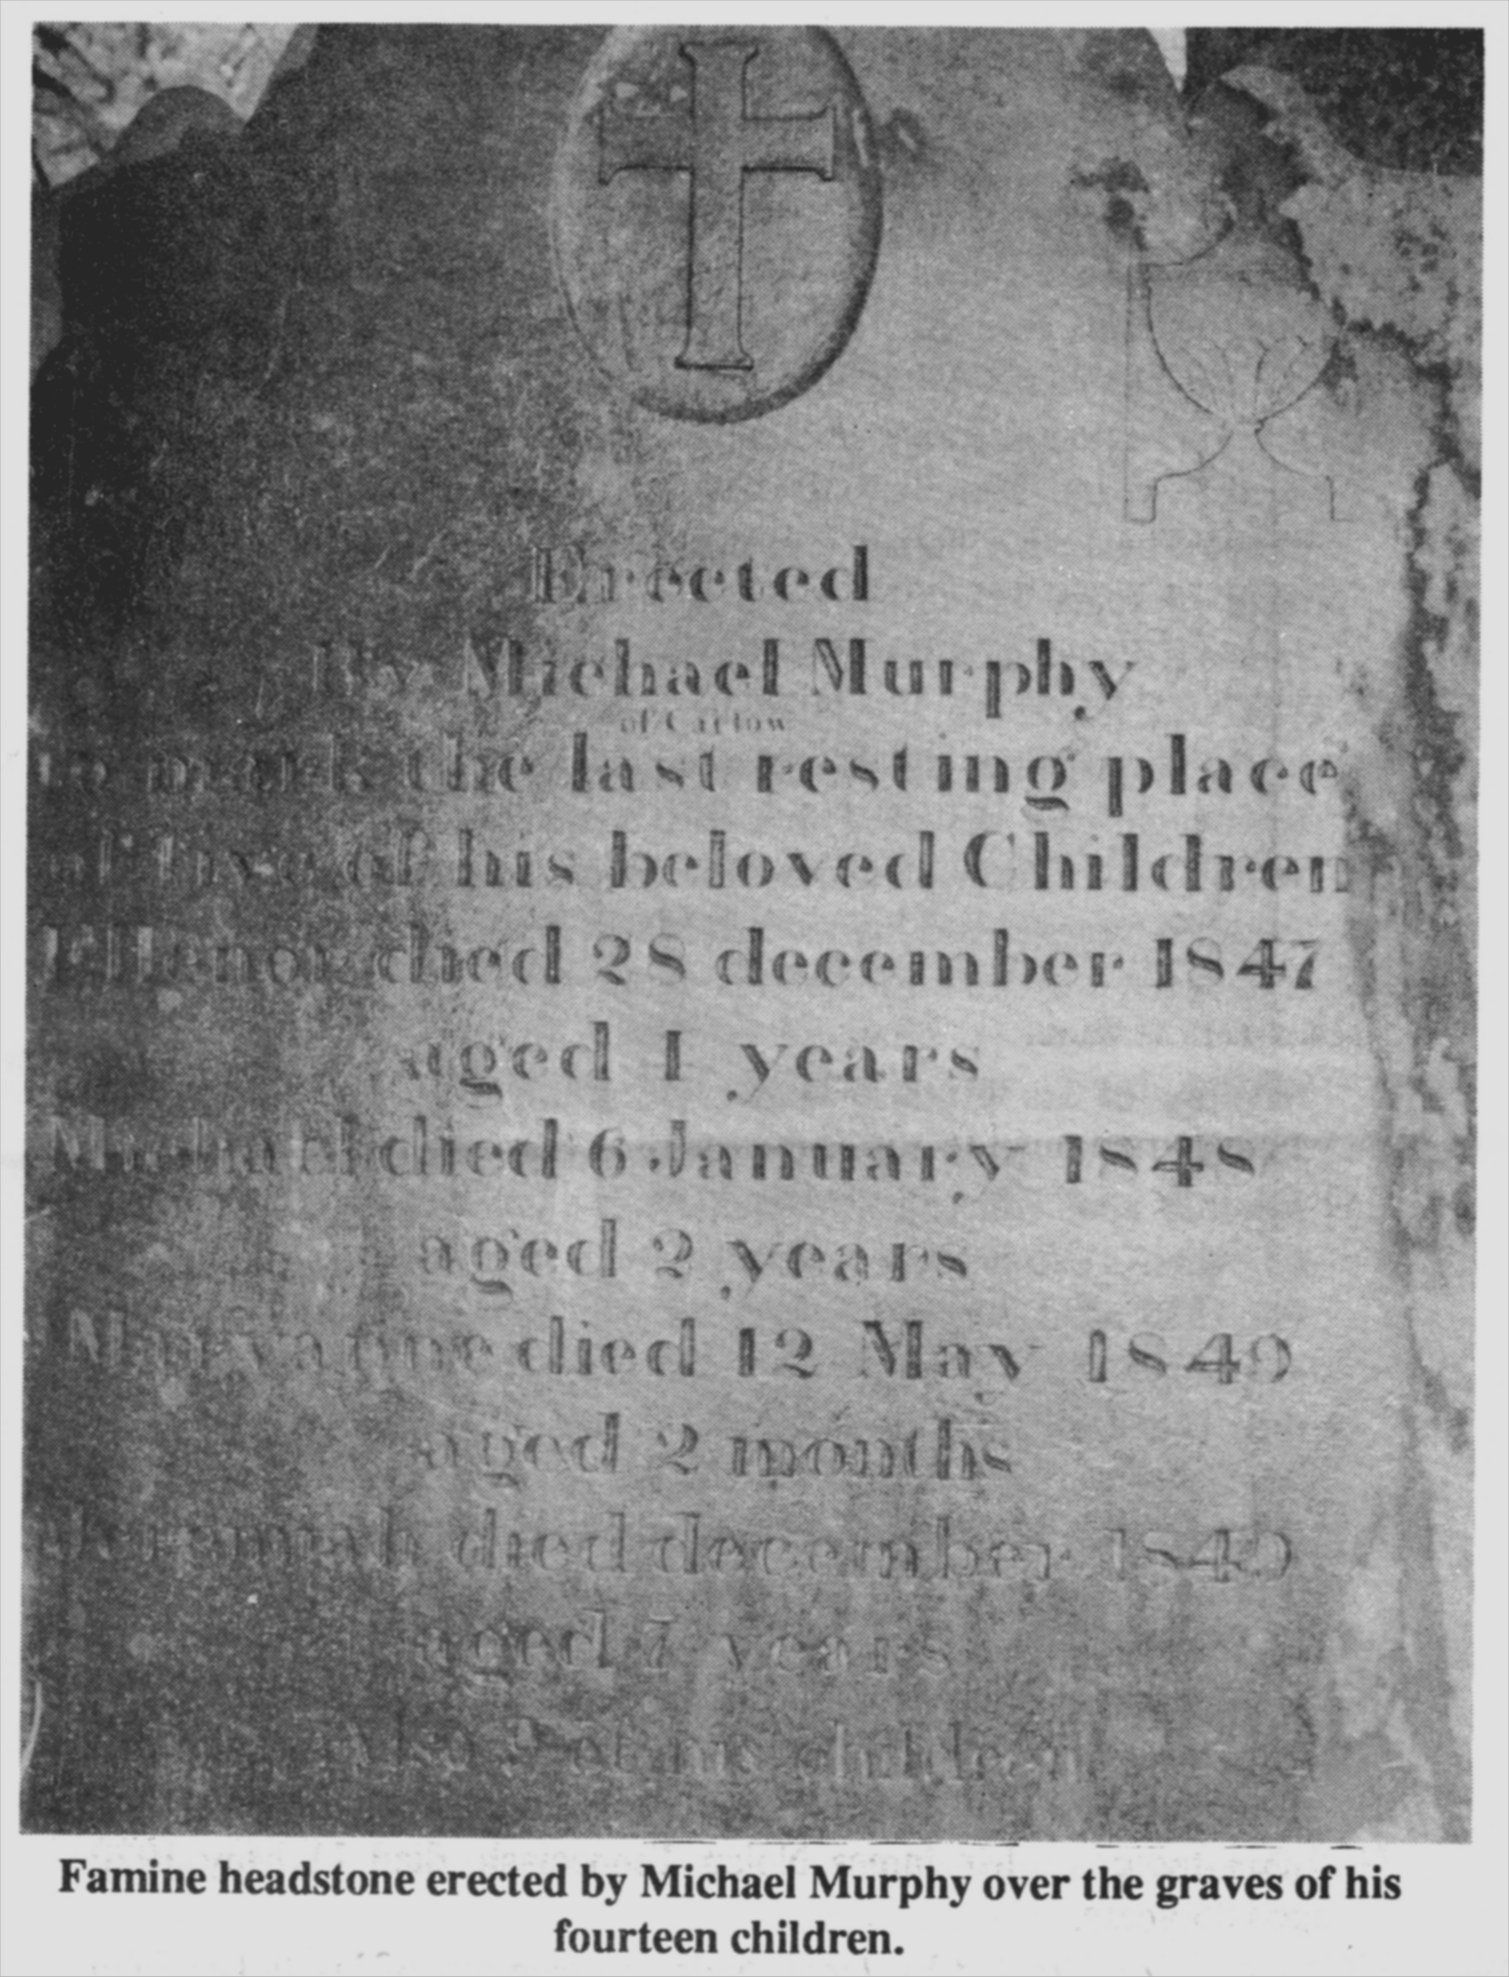 Erected
By Michael Murphy
of Carlow
to mark the last resting place
of five of his beloved Children
Ellenor died 28 december 1847
aged 1 years
Michael died 6 January 1848
aged 2 years
Maryanne died 12 May 1849
aged 2 months
Jeremiah died december 1849
aged 7 years
Also of his children
Famine headstone erected by Michael Murphy over the graves of his
fourteen children.